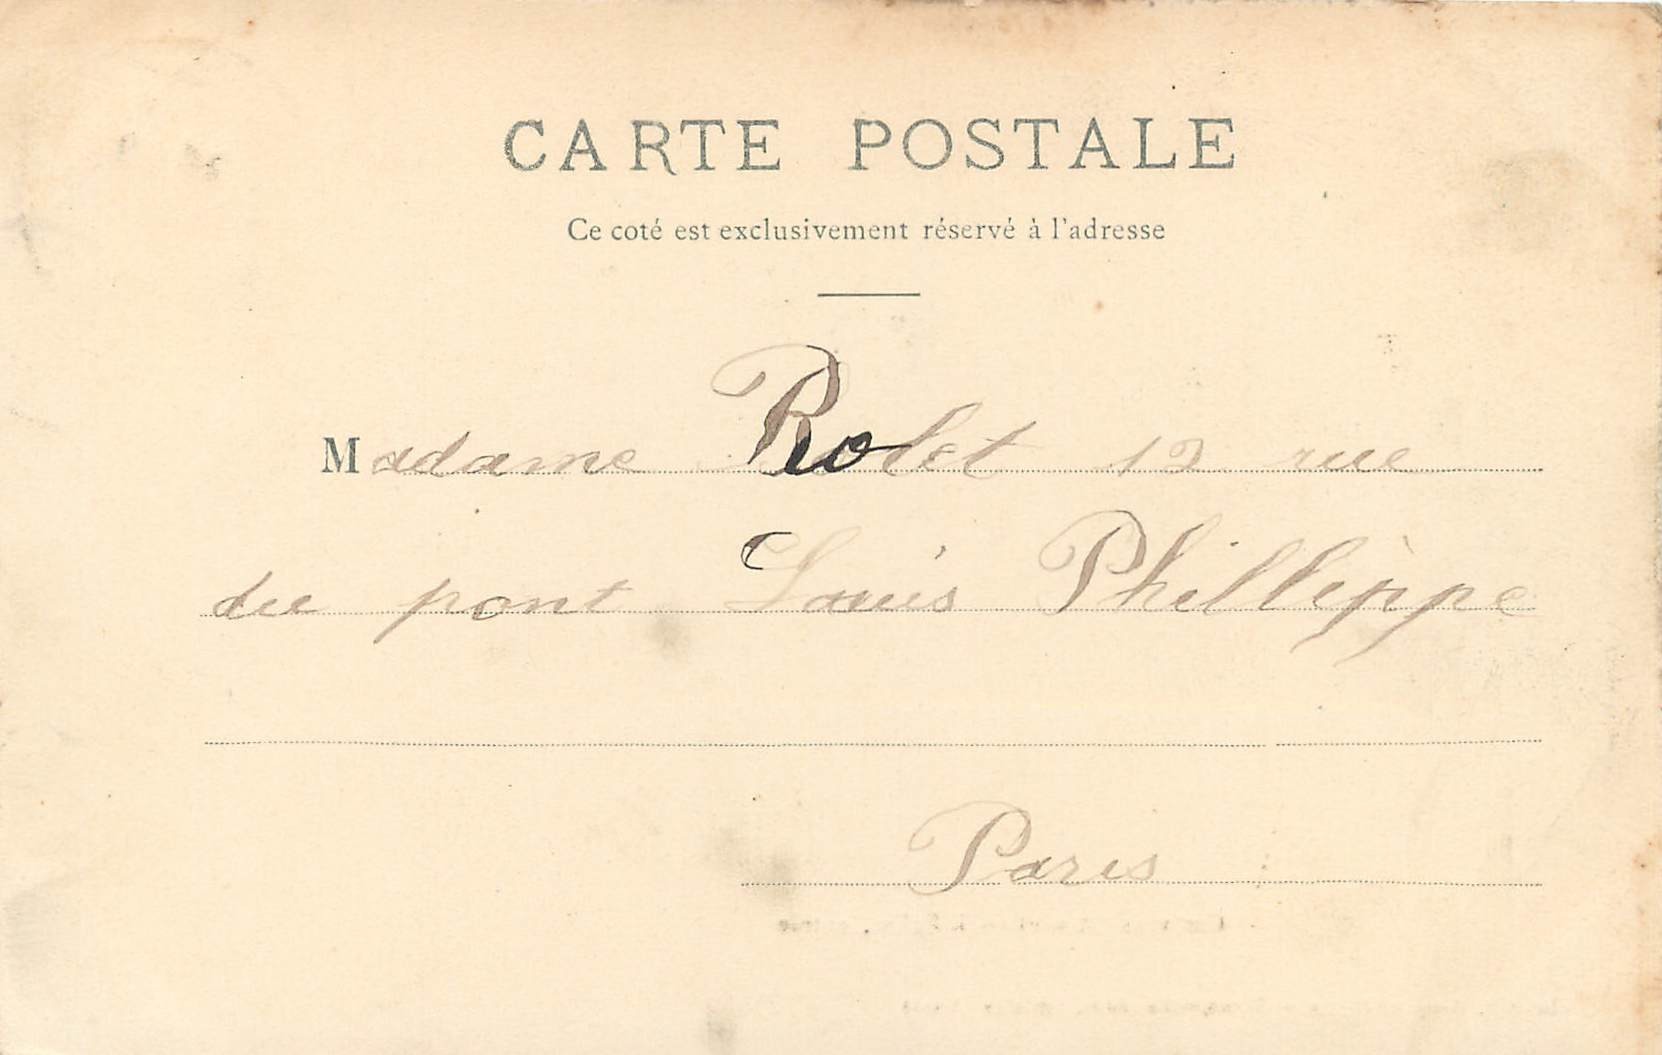 CARTE POSTALE
Ce coté est exclusivement réservé à l'adresse
Madame Rolet 12 rue
du pont Louis Phillippe
Paris